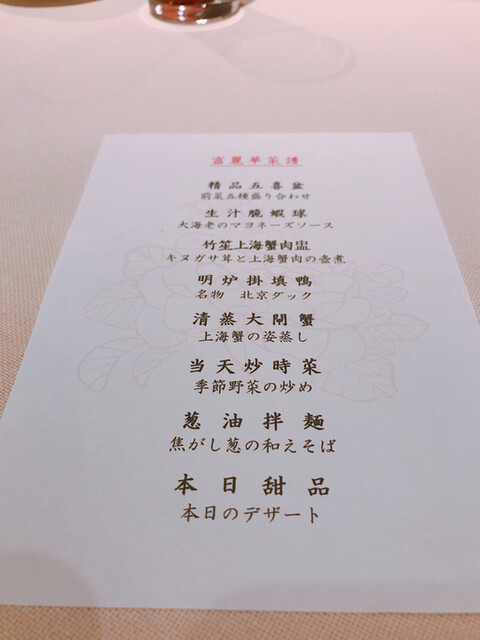 富麗華菜譜
精品五喜盆
前菜五種盛り合わせ
生汁脆蝦球
大海老のマヨネーズソース
竹笙上海蟹肉盅
キヌガサ茸と上海蟹肉の壺煮
明炉掛填鴨
名物 北京ダック
清蒸大閘蟹
上海蟹の姿蒸し
当天炒時菜
季節野菜の炒め
葱油拌麺
焦がし葱の和えそば
本日甜品
本日のデザート